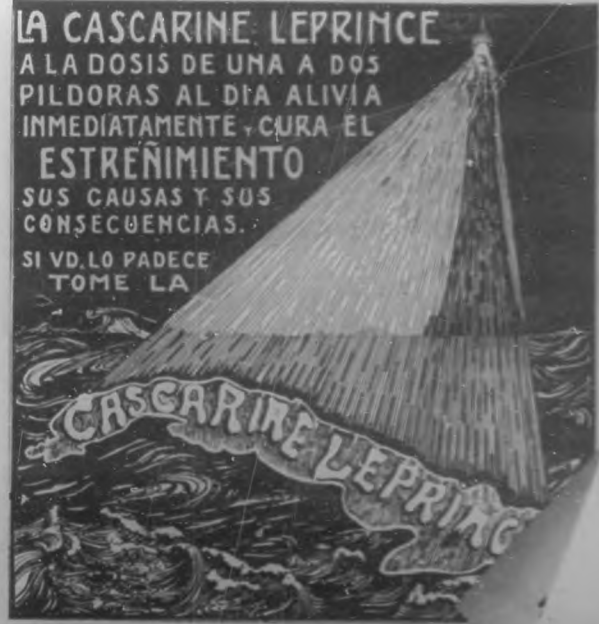 LA CASCARINE LEPRINCE
A LA DOSIS DE UNA A DOS
PILDORAS AL DIA ALIVIA
INMEDIATAMENTE Y CURA EL
ESTREÑIMIENTO
SUS CAUSAS Y SUS
CONSECUENCIAS.
SI VD. LO PADECE
TOME LA
CASCARINE LEPRINC